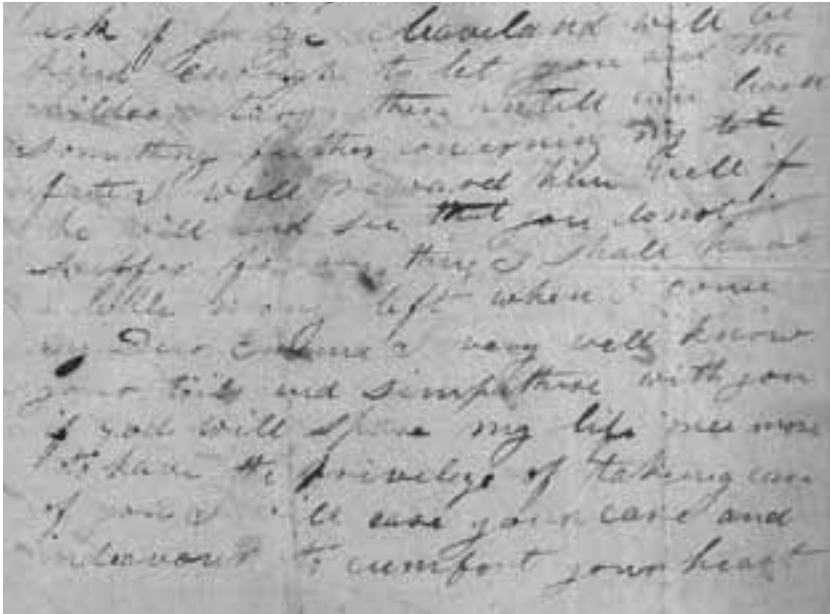 ask if judge cleaveland will be
kind enough to let you and the
children tarry there untill you hear
something further concerning my lot
fate I will reward him well if
he will and see that you do not
suffer for any thing I shall have
a little mony left when I come
my Dear Emma I very well know
your toils and simpathise with you
if god will spare my life once more
to have the privelege of takeing care
of you I will ease your care and
indeavour to cumfort your heart